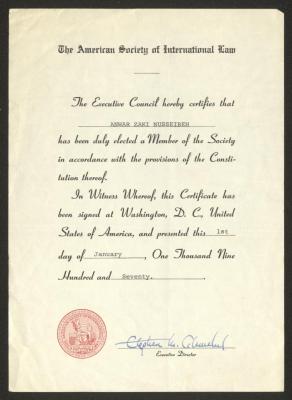 The American Society of International Law
The Executive Council hereby certifies that
ANWAR ZAKI NUSSEIBEH
has been duly elected a Member of the Society
in accordance with the provisions of the Consti-
tution thereof.
In Witness Whereof, this Certificate has
been signed at Washington, D. C., United
States of America, and presented this 1st
day of January, One Thousand Nine
Hundred and Seventy.
Executive Director